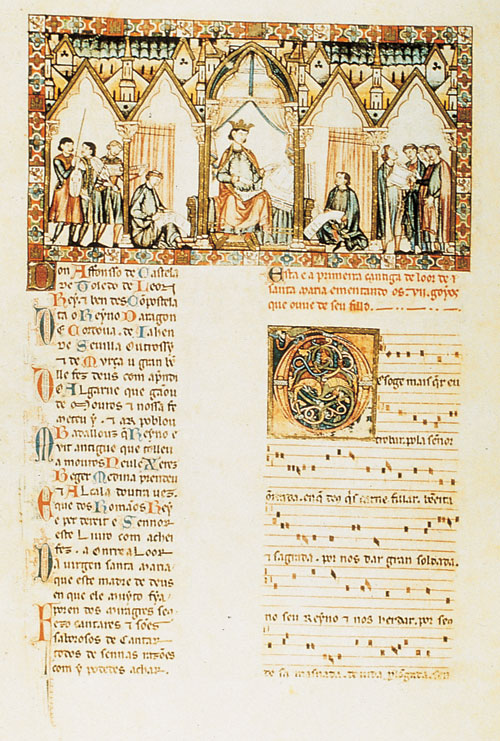 Don Affonso de Castela
de Toledo de Leon
Rey τ ben des Conpostela
ta o Reyno Daragon
E Cordoua. de Iahen
de Seuilla outrossy
τ de Murça u gran bē
lle fez deus com apndi
o Algarue que gãou
de Mouros τ nossa fe
meteu y. τ ar poblou
Badallous q̄ Reyno e
Muit antigue que tolleu
a mouros Neul e Xeres
Beger Medina prendeu
τ Alcala doutra uez.
E que dos Romãos Rey
e per dereit e Sennor
este Liuro com achei
fez. a onrr e a Loor
Da uirgen santa Maria
que este madre de deus
en que ele muyto fya.
Poren dos miragres seus
fezo cantares τ sões
saborosos de Cantar
todos de sennas razões
com y podedes achar.
Esta e a primeira cantiga de loor de
santa maria ementando os .vii. goyos
que ouue de seu fillo.
Des oge mais q̄r eu
trobar. pola sennor
onrrada. en q̄ de9 q̄s carne fillar. bẽeita
τ sagrada. por nos dar gran soldada.
no seu Reyno τ nos herdar. por seus
de sa masnada. de uida p̱lōgada. sen